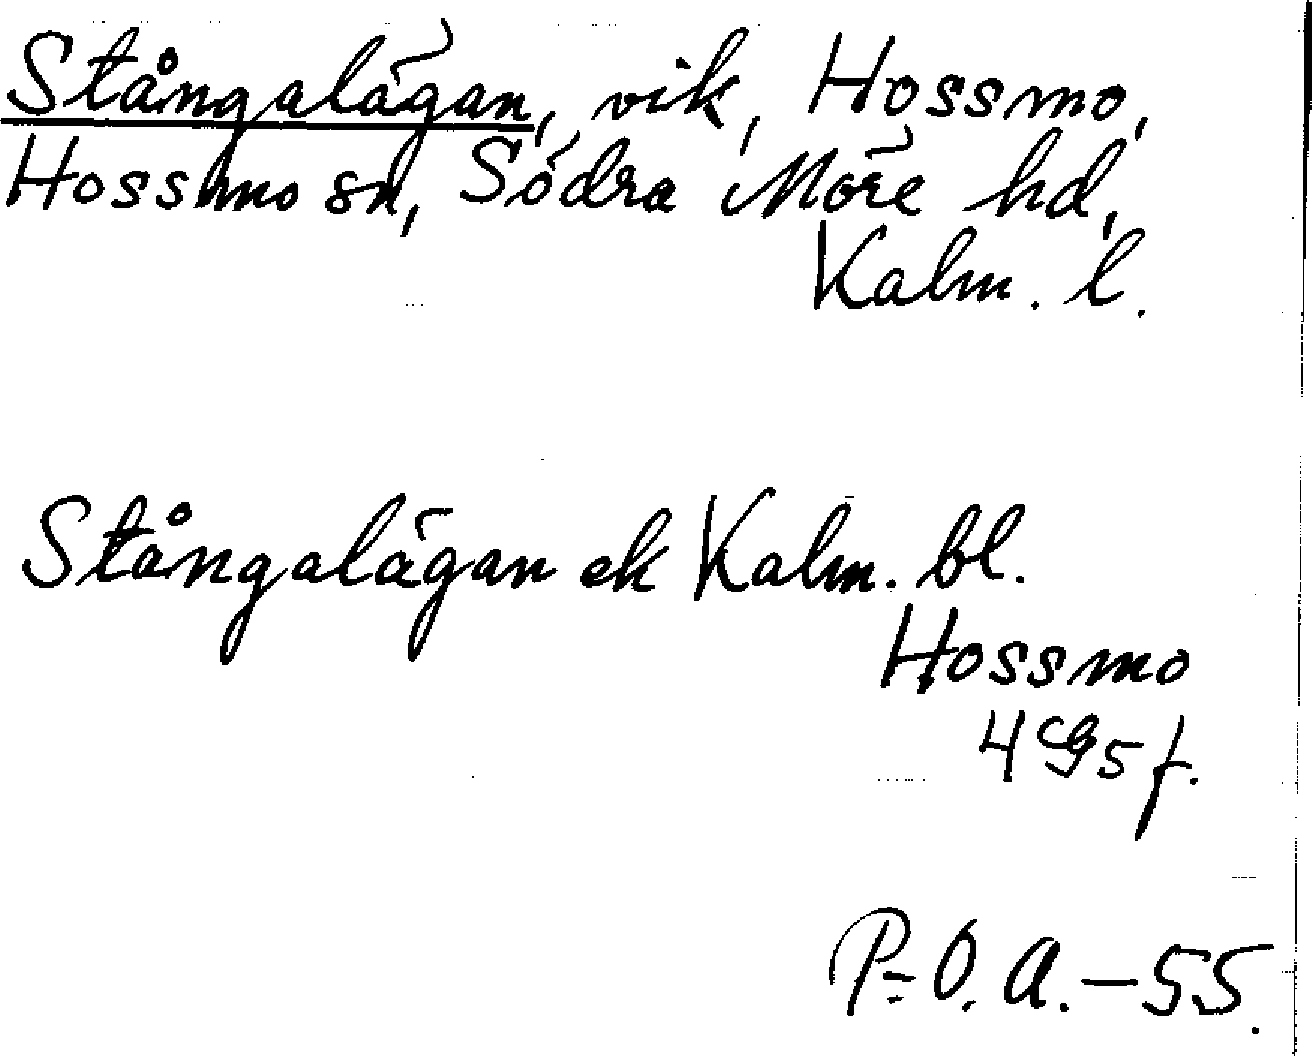 Stångalägan, vik, Hossmo,
Hossmo sn, Södra Möre hd,
Kalm. l.
Stångalägan ek Kalm. bl.
Hossmo
4G5f.
P-O. A. - 55.